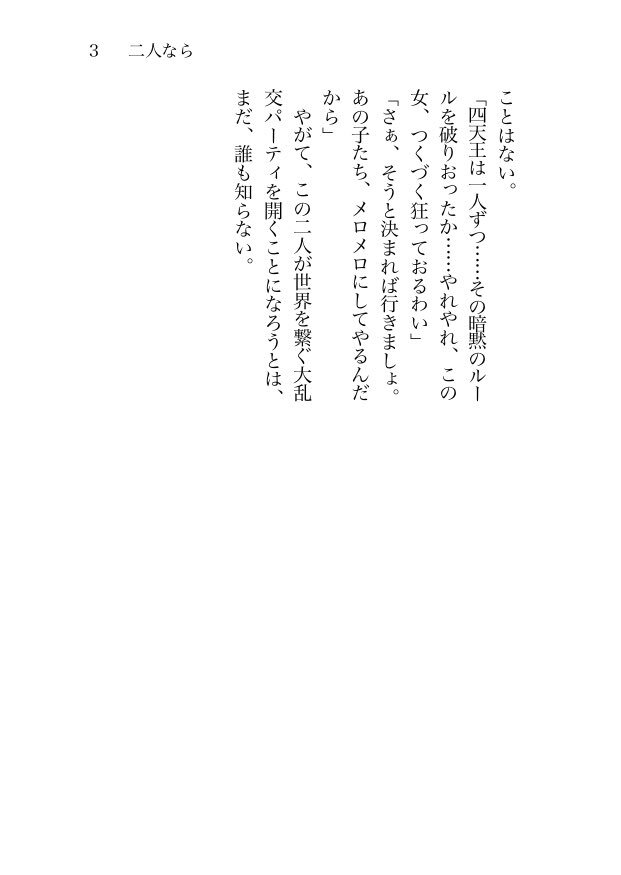 3 二人なら
ことはない。
「四天王は一人ずつ……その暗黙のルー
ルを破りおったか……やれやれ、この
女、つくづく狂っておるわい」
「さぁ、そうと決まれば行きましょ。
あの子たち、メロメロにしてやるんだ
から」
やがて、この二人が世界を繋ぐ大乱
交パーティを開くことになろうとは、
まだ、誰も知らない。